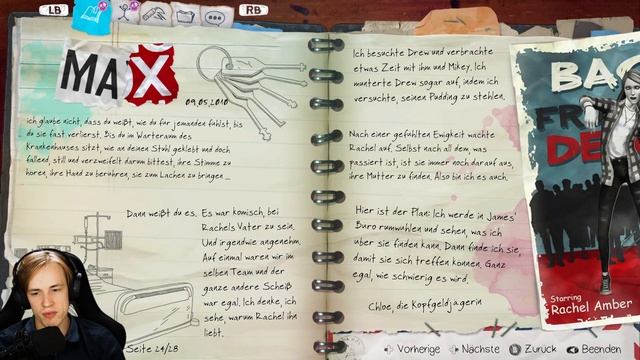 LB
RB
MAX
09.05.2010
Ich glaube nicht, dass du weißt, wie du für jemanden fühlst, bis
du sie fast verlierst. Bis du im Warteraum des
Krankenhauses sitzt, wie an deinen Stuhl geklebt und doch
fallend, still und verzweifelt darum bittest, ihre Stimme zu
hören, ihre Hand zu berühren, sie zum Lachen zu bringen ...
Dann weißt du es. Es war komisch, bei
Rachels Vater zu sein.
Und irgendwie angenehm.
Auf einmal waren wir im
selben Team und der
ganze andere Scheiß
war egal. Ich denke, ich
sehe, warum Rachel ihn
liebt.
Seite 24/28
Ich besuchte Drew und verbrachte
etwas Zeit mit ihm und Mikey. Ich
munterte Drew sogar auf, indem ich
versuchte, seinen Pudding zu stehlen.
Nach einer gefühlten Ewigkeit wachte
Rachel auf. Selbst nach all dem, was
passiert ist, ist sie immer noch darauf aus,
ihre Mutter zu finden. Also bin ich es auch.
Hier ist der Plan: Ich werde in James'
Büro rumwühlen und sehen, was ich
über sie finden kann. Dann finde ich sie,
damit sie sich treffen können. Ganz
egal, wie schwierig es wird.
Chloe, die Kopfgeldjägerin
BAC
FR
DE
Starring
Rachel Amber
Vorherige
Nächste
Zurück
Beenden